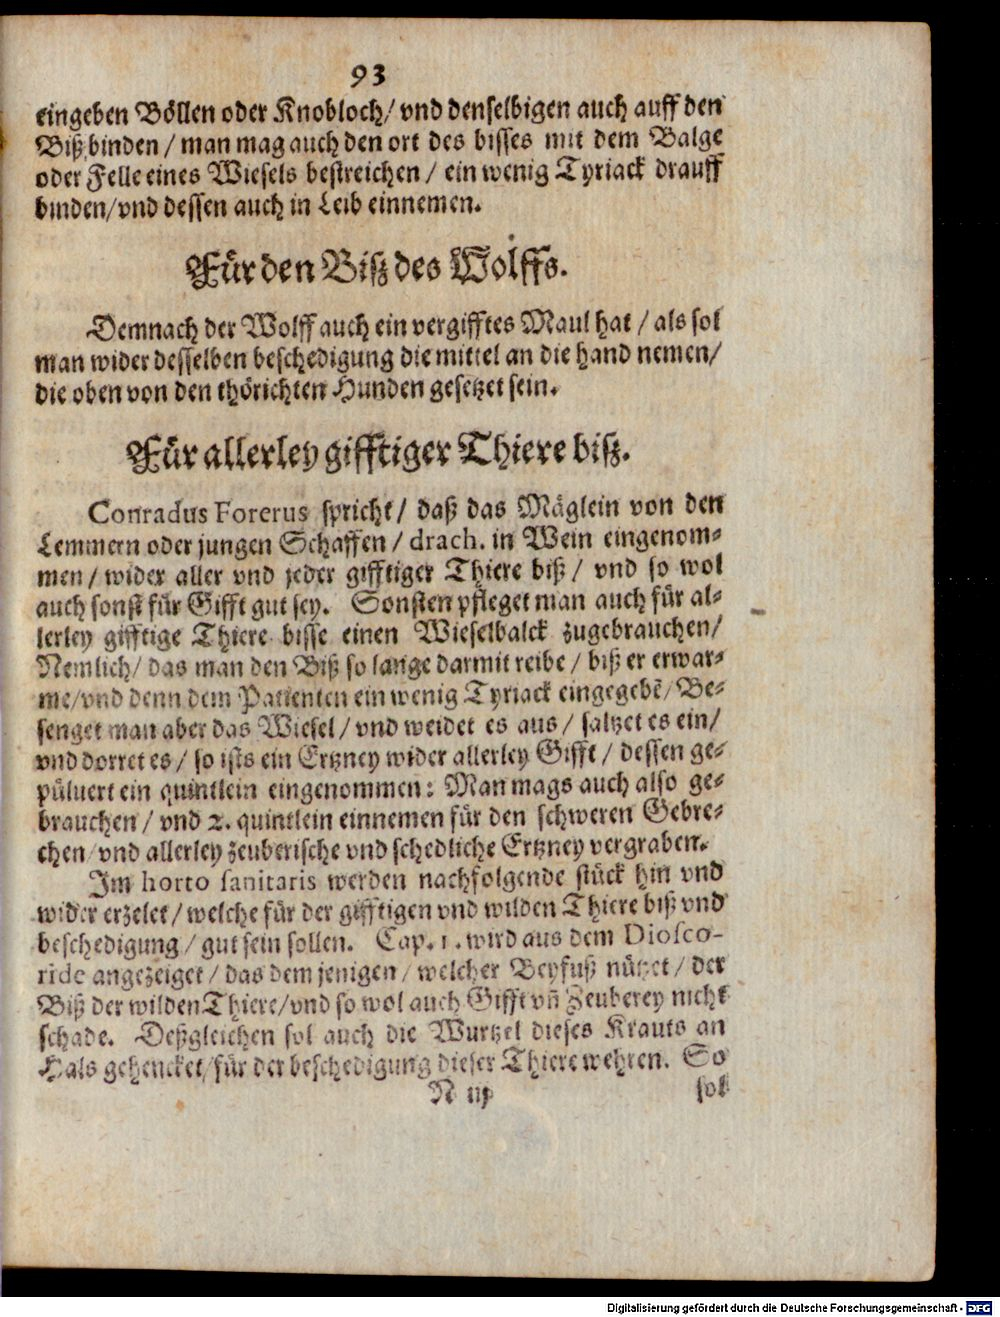 93
eingeben Böllen oder Knobloch/ vnd denselbigen auch auff den
Biß binden / man mag auch den ort des bisses mit dem Balge
oder Felle eines Wiesels bestreichen / ein wenig Tyriack drauff
binden/vnd dessen auch in Leib einnemen.
Für den Biß des Wolffs.
Demnach der Wolff auch ein vergifftes Maul hat / als sol
man wider desselben beschedigung die mittel an die hand nemen/
die oben von den thörichten Hunden gesetzet sein.
Für allerley gifftiger Thiere biß.
Conradus Forerus spricht/ daß das Mäglein von den
Lemmern oder jungen Schaffen / drach. in Wein eingenom-
men / wider aller vnd jeder gifftiger Thiere biß / vnd so wol
auch sonst für Gifft gut sey. Sonsten pfleget man auch für al-
lerley gifftige Thiere bisse einen Wieselbalck zugebrauchen/
Nemlich/ das man den Biß so lange darmit reibe / biß er erwar-
me/vnd denn dem Patienten ein wenig Tyriack eingegebē/ Be-
senget man aber das Wiesel / vnd weidet es aus / saltzet es ein/
vnd dorret es / so ists ein Ertzney wider allerley Gifft / dessen ge-
pülvert ein quintlein eingenommen: Man mags auch also ge-
brauchen / vnd 2. quintlein einnemen für den schweren Gebre-
chen/vnd allerley zeuberische vnd schedliche Ertzney vergraben.
Im horto sanitaris werden nachfolgende stück hin vnd
wider erzelet / welche für der gifftigen vnd wilden Thiere biß vnd
beschedigung / gut sein sollen. Cap. 1. wird aus dem Diosco-
ride angezeiget / das dem jenigen / welcher Beyfuß nützet / der
Biß der wilden Thiere/vnd so wol auch Gifft vñ Zeuberey nicht
schade. Deßgleichen sol auch die Wurtzel dieses Krauts an
Hals gehencket/für der beschedigung dieser Thiere wehren. So
N iij sol
Digitalisierung gefördert durch die Deutsche Forschungsgemeinschaft - DFG